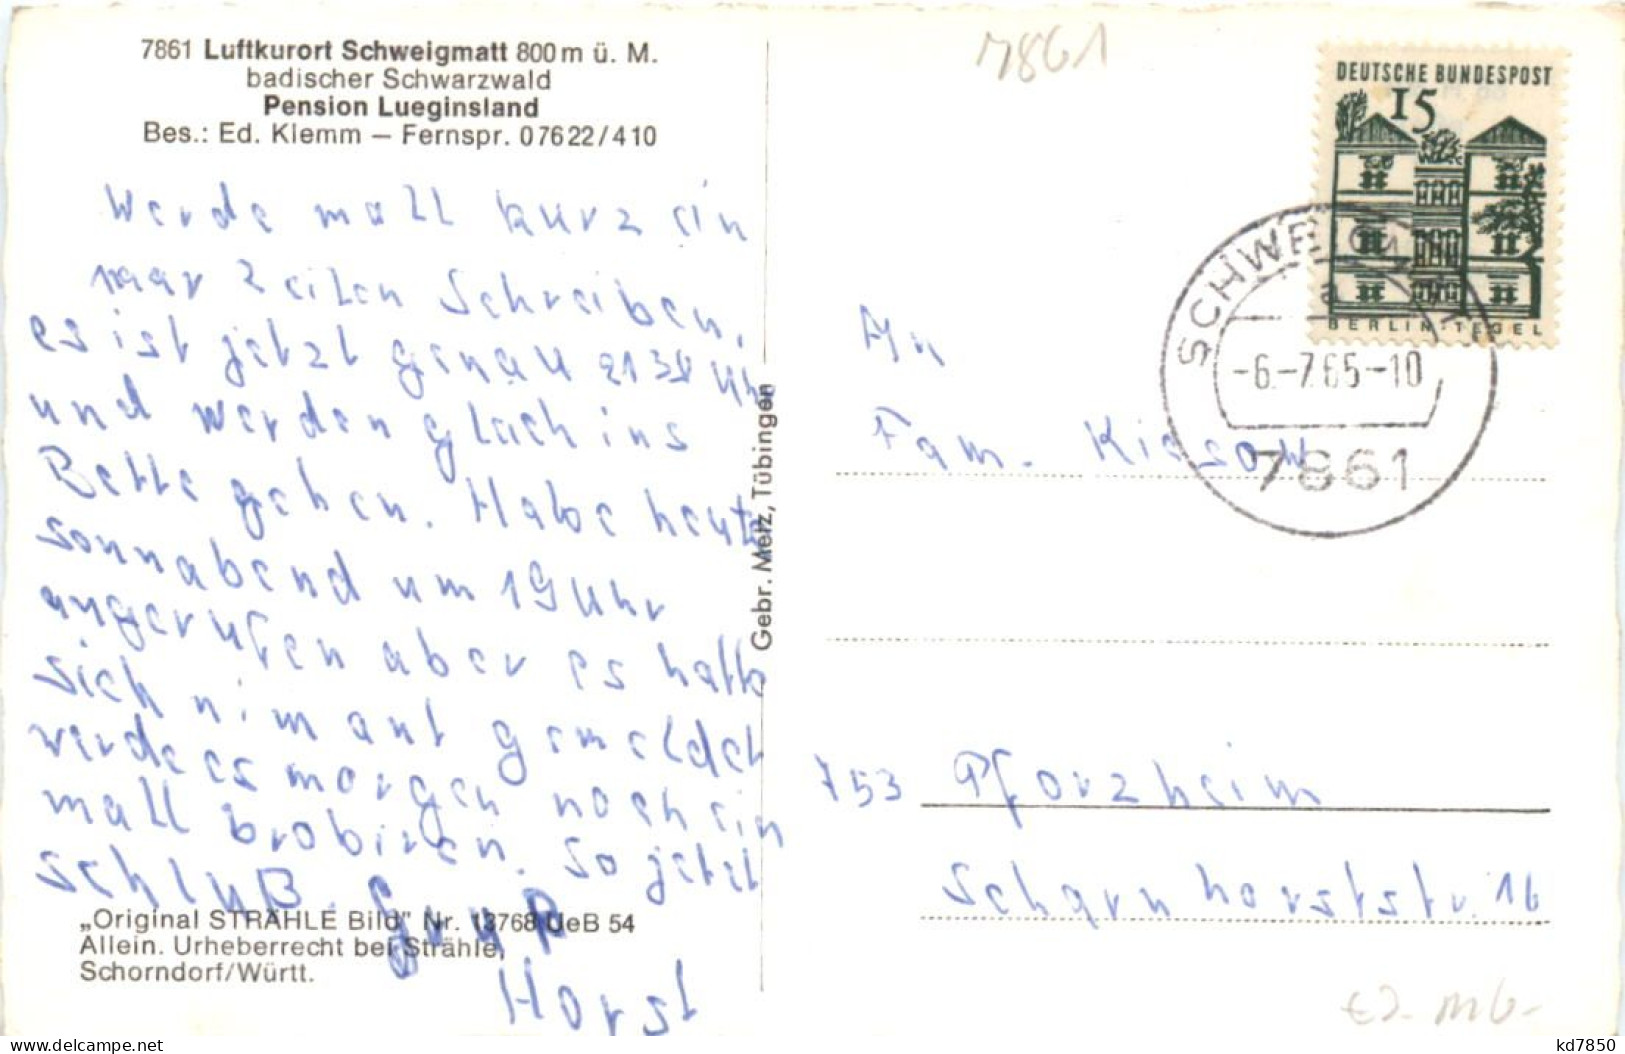 7861 Luftkurort Schweigmatt 800 m ü. M.
badischer Schwarzwald
Pension Lueginsland
Bes.: Ed. Klemm — Fernspr. 07622/410
Werde mall kurz ein
par Zeilen Schreiben,
es ist jetzt genau 2130 Uhr
und werden glach ins
Bette gehen. Habe heute
sonnabend um 19 Uhr
angerufen aber es hatte
sich nimant gemeldet
werde es morgen noch ein
mall brobiren. So jetzt
schluß. Gruß
Horst
„Original STRÄHLE Bild" Nr. 13768 UeB 54
Allein. Urheberrecht bei Strähle,
Schorndorf/Württ.
Gebr. Metz, Tübingen
7861
DEUTSCHE BUNDESPOST
15
BERLIN-TEGEL
SCHWEIGMATT
-6.-7.65-10
7861
An
Fam. Kiesow
753 Pforzheim
Scharnhorststr. 16
kd7850